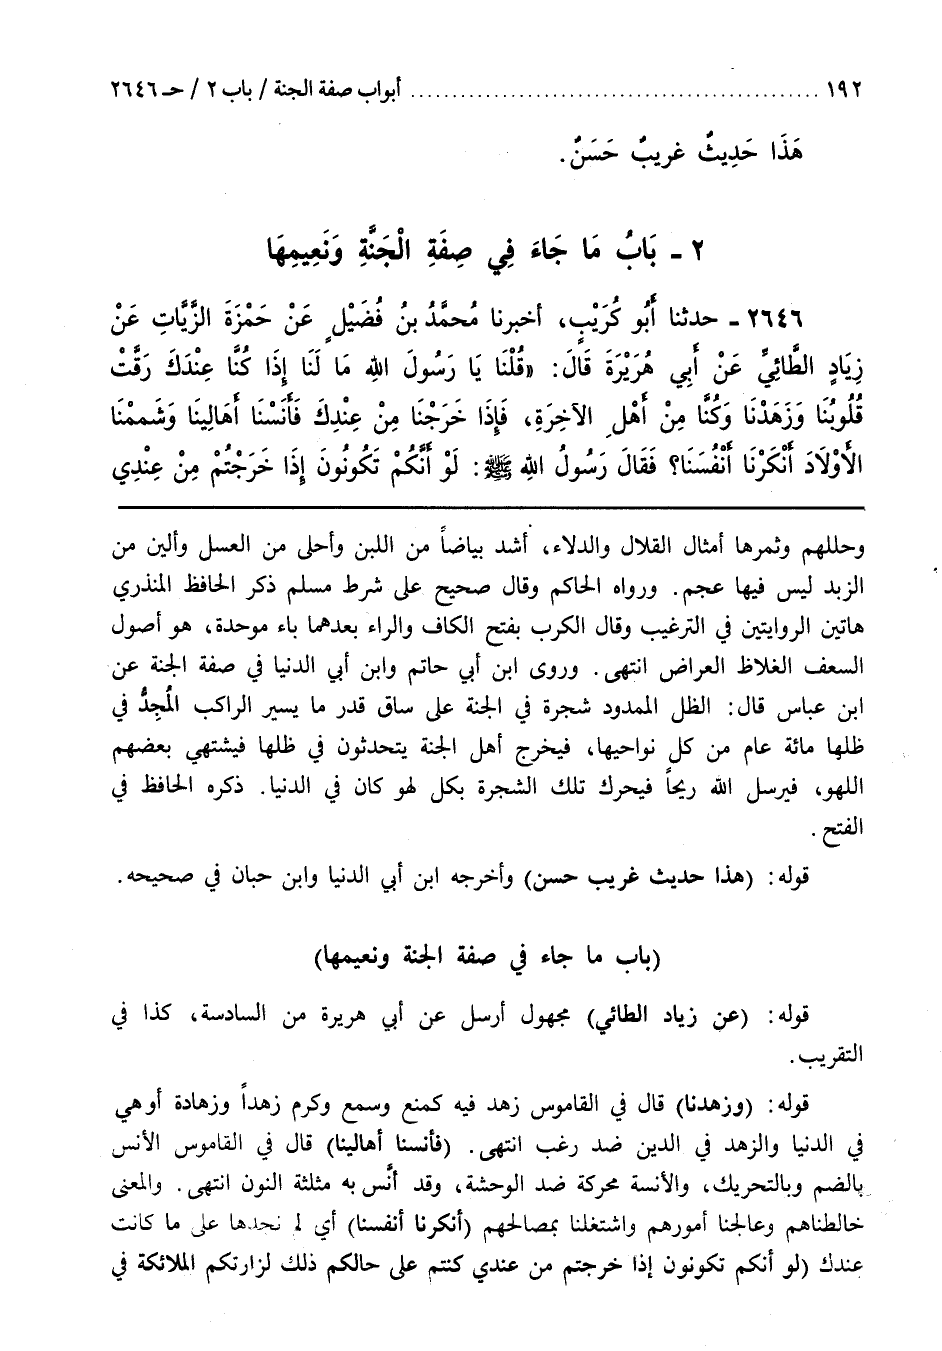 ١٩٢ ................................................ أبواب صفة الجنة / باب ٢ / حـ ٢٦٤٦
هَذَا حَدِيثٌ غريبٌ حَسَنٌ.
٢ ـ بَابُ مَا جَاءَ فِي صِفَةِ الْجَنَّةِ وَنَعِيمِهَا
٢٦٤٦ ـ حدثنا أَبُو كُرَيْبٍ، أخبرنا مُحمَّدُ بنُ فُضَيْلٍ عَنْ حَمْزَةَ الزَّيَّاتِ عَنْ
زِيَادٍ الطَّائِيِّ عَنْ أَبِي هُرَيْرَةَ قَالَ: «قُلْنَا يَا رَسُولَ اللهِ مَا لَنَا إِذَا كُنَّا عِنْدَكَ رَقَّتْ
قُلُوبُنَا وَزَهَدْنَا وَكُنَّا مِنْ أَهْلِ الآخِرَةِ، فَإِذَا خَرَجْنَا مِنْ عِنْدِكَ فَأَنَسْنَا أَهَالِينَا وَشَممْنَا
الأَوْلَادَ أَنْكَرْنَا أَنْفُسَنَا؟ فَقَالَ رَسُولُ اللهِ ﷺ: لَوْ أَنَّكُمْ تَكُونُونَ إِذَا خَرَجتُمْ مِنْ عِنْدِي
وحللهم وثمرها أمثال القلال والدلاء، أشد بياضاً من اللبن وأحلى من العسل وألين من
الزبد ليس فيها عجم. ورواه الحاكم وقال صحيح على شرط مسلم ذكر الحافظ المنذري
هاتين الروايتين في الترغيب وقال الكرب بفتح الكاف والراء بعدهما باء موحدة، هو أصول
السعف الغلاظ العراض انتهى. وروى ابن أبي حاتم وابن أبي الدنيا في صفة الجنة عن
ابن عباس قال: الظل الممدود شجرة في الجنة على ساق قدر ما يسير الراكب الْمُجِدُّ في
ظلها مائة عام من كل نواحيها، فيخرج أهل الجنة يتحدثون في ظلها فيشتهي بعضهم
اللهو، فيرسل الله ريحاً فيحرك تلك الشجرة بكل لهو كان في الدنيا. ذكره الحافظ في
الفتح.
قوله: (هذا حديث غريب حسن) وأخرجه ابن أبي الدنيا وابن حبان في صحيحه.
(باب ما جاء في صفة الجنة ونعيمها)
قوله: (عن زياد الطائي) مجهول أرسل عن أبي هريرة من السادسة، كذا في
التقريب.
قوله: (وزهدنا) قال في القاموس زهد فيه كمنع وسمع وكرم زهداً وزهادة أو هي
في الدنيا والزهد في الدين ضد رغب انتهى. (فأنسنا أهالينا) قال في القاموس الأنس
بالضم وبالتحريك، والأنسة محركة ضد الوحشة، وقد أنَّس به مثلثة النون انتهى. والمعنى
خالطناهم وعالجنا أمورهم واشتغلنا بمصالحهم (أنكرنا أنفسنا) أي لم نجدها على ما كانت
عندك (لو أنكم تكونون إذا خرجتم من عندي كنتم على حالكم ذلك لزارتكم الملائكة في